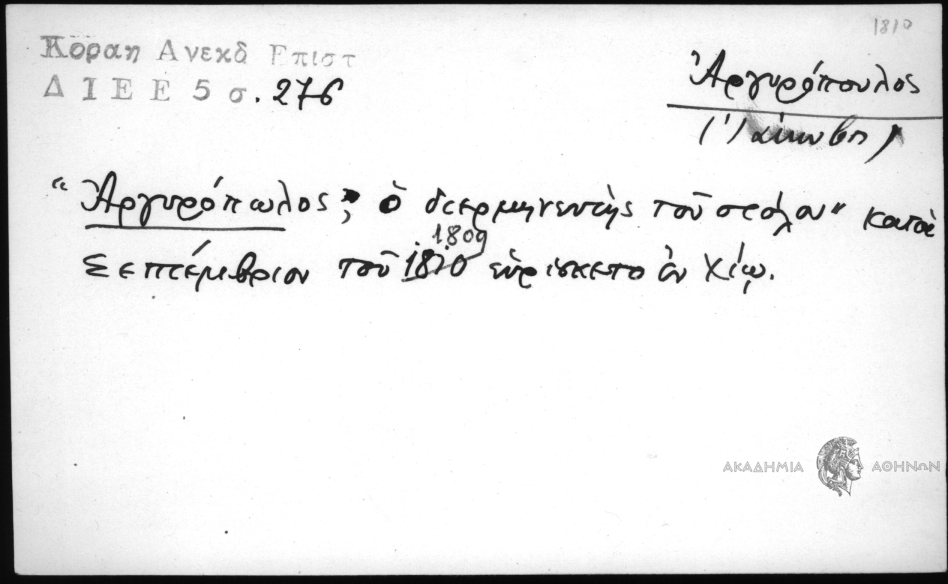 1810
Κοραη Ανεκδ Επιστ
Δ Ι Ε Ε 5 σ. 276
Ἀργυρόπουλος
(Ἰάκωβη)
"Ἀργυρόπωλος, ὁ διερμηνευτὴς τοῦ στόλου" κατὰ
1809
Σεπτέμβριον τοῦ 1810 εὑρίσκετο ἐν Χίῳ.
ΑΚΑΔΗΜΙΑ ΑΘΗΝΩΝ